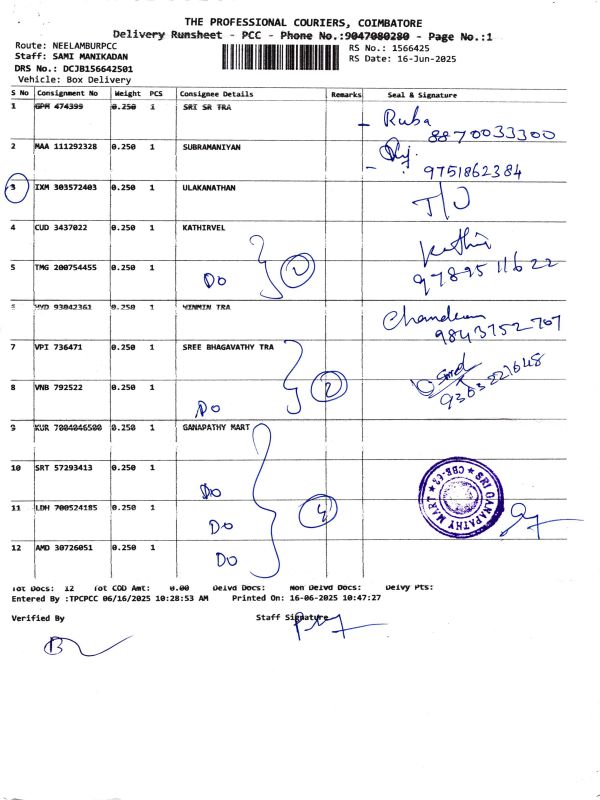 THE PROFESSIONAL COURIERS, COIMBATORE
Delivery Runsheet - PCC - Phone No.:9047080280 - Page No.:1
Route: NEELAMBURPCC RS No.: 1566425
Staff: SAMI MANIKADAN RS Date: 16-Jun-2025
DRS No.: DCJB156642501
Vehicle: Box Delivery
S No Consignment No Weight PCS Consignee Details Remarks Seal & Signature
1 GPM 474399 0.250 1 SRI SR TRA Ruba
8870033300
2 MAA 111292328 0.250 1 SUBRAMANIYAN
9751862384
3 IXM 303572403 0.250 1 ULAKANATHAN
4 CUD 3437022 0.250 1 KATHIRVEL
5 TMG 200754455 0.250 1 DO 2 9789511622
6 HYD 93042361 0.250 1 VINMIN TRA
9843752707
7 VPI 736471 0.250 1 SREE BHAGAVATHY TRA
8 VNB 792522 0.250 1 DO 2 9363221648
9 KUR 7004046500 0.250 1 GANAPATHY MART
10 SRT 57293413 0.250 1 DO
11 LDH 700524185 0.250 1 DO 4
12 AMD 30726051 0.250 1 DO
SRI GANAPATHY MART
CBE-63
Tot Docs: 12 Tot COD Amt: 0.00 Delvd Docs: Non Delvd Docs: Delvy Pts:
Entered By :TPCPCC 06/16/2025 10:28:53 AM Printed On: 16-06-2025 10:47:27
Verified By Staff Signature